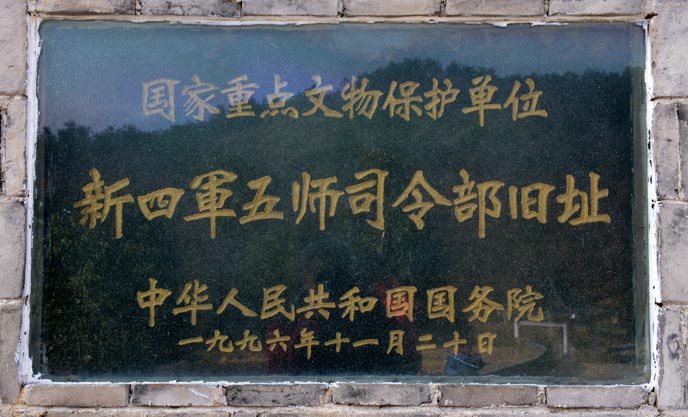 国家重点文物保护单位
新四軍五师司令部旧址
中华人民共和国国务院
一九九六年十一月二十日